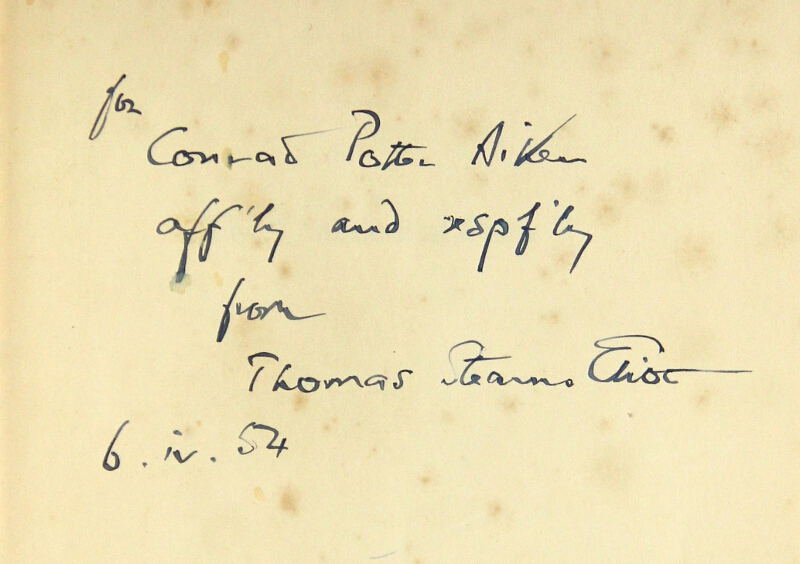 for
Conrad Potter Aiken
aff'ly and respf'ly
from
Thomas Stearns Eliot
6.iv.54